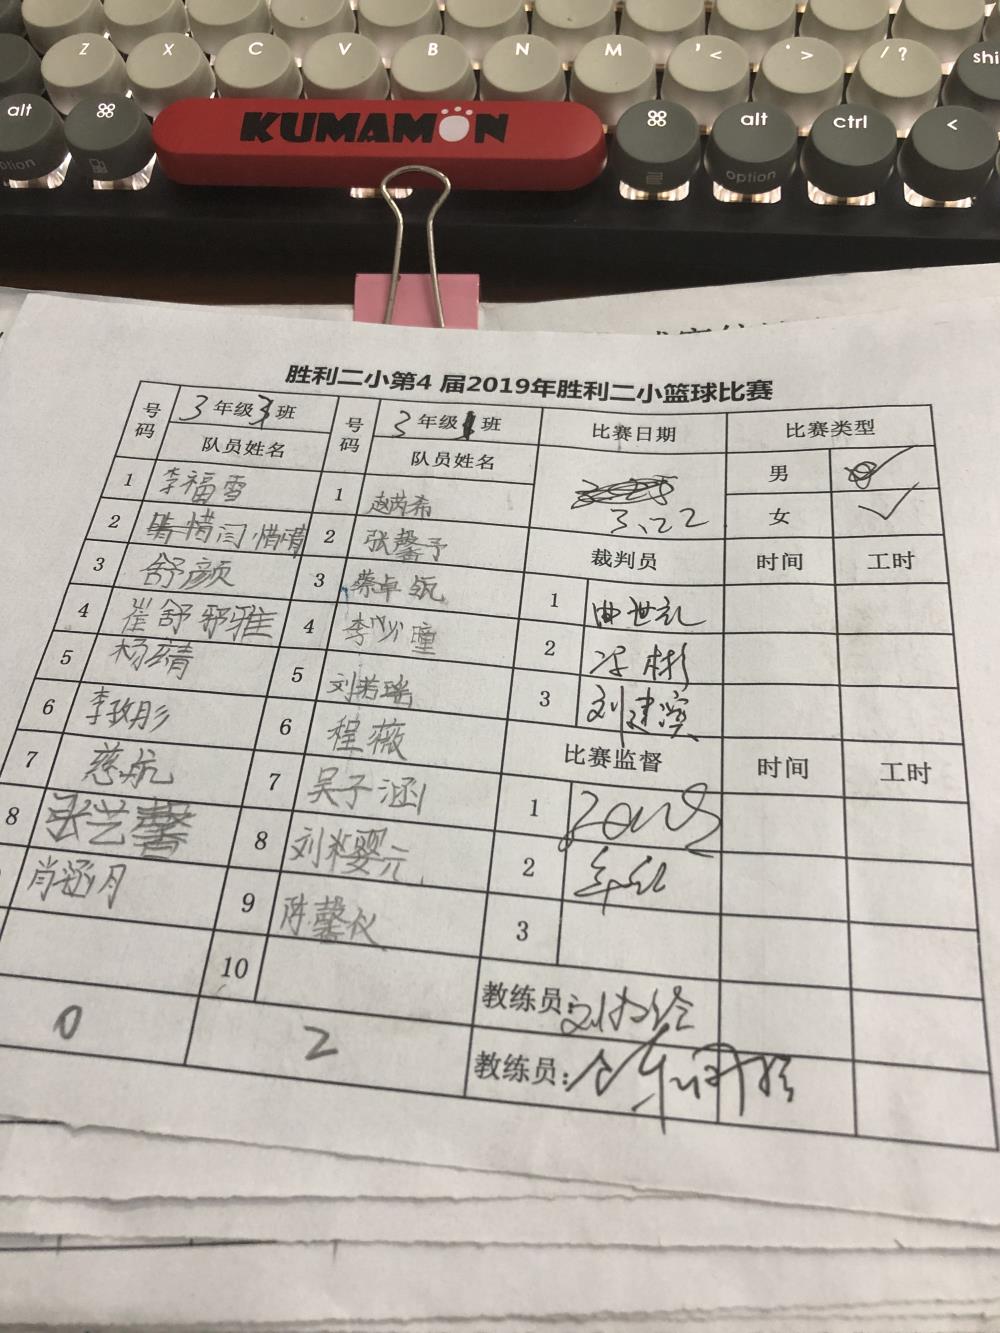 Z X C V B N M , < . > / ? shi
alt ⌘ KUMAMON ⌘ alt ctrl <
option option
胜利二小第4 届2019年胜利二小篮球比赛
号码 3 年级 3 班 号码 3 年级 1 班 比赛日期 比赛类型
队员姓名 队员姓名 男
1 李福雪 1 赵芮希 3.22 女 ✓
2 闫惜晴 2 张馨予 裁判员 时间 工时
3 舒颜 3 蔡卓 1 曲世礼
4 崔舒雅 4 李少瞳 2 彬
5 杨 5 刘若瑶 3 刘建滨
6 李玫彤 6 程薇 比赛监督 时间 工时
7 慈航 7 吴子涵 1
8 张艺馨 8 刘 元 2
肖涵月 9 陈馨仪 3
10 教练员: 刘
0 2 教练员: